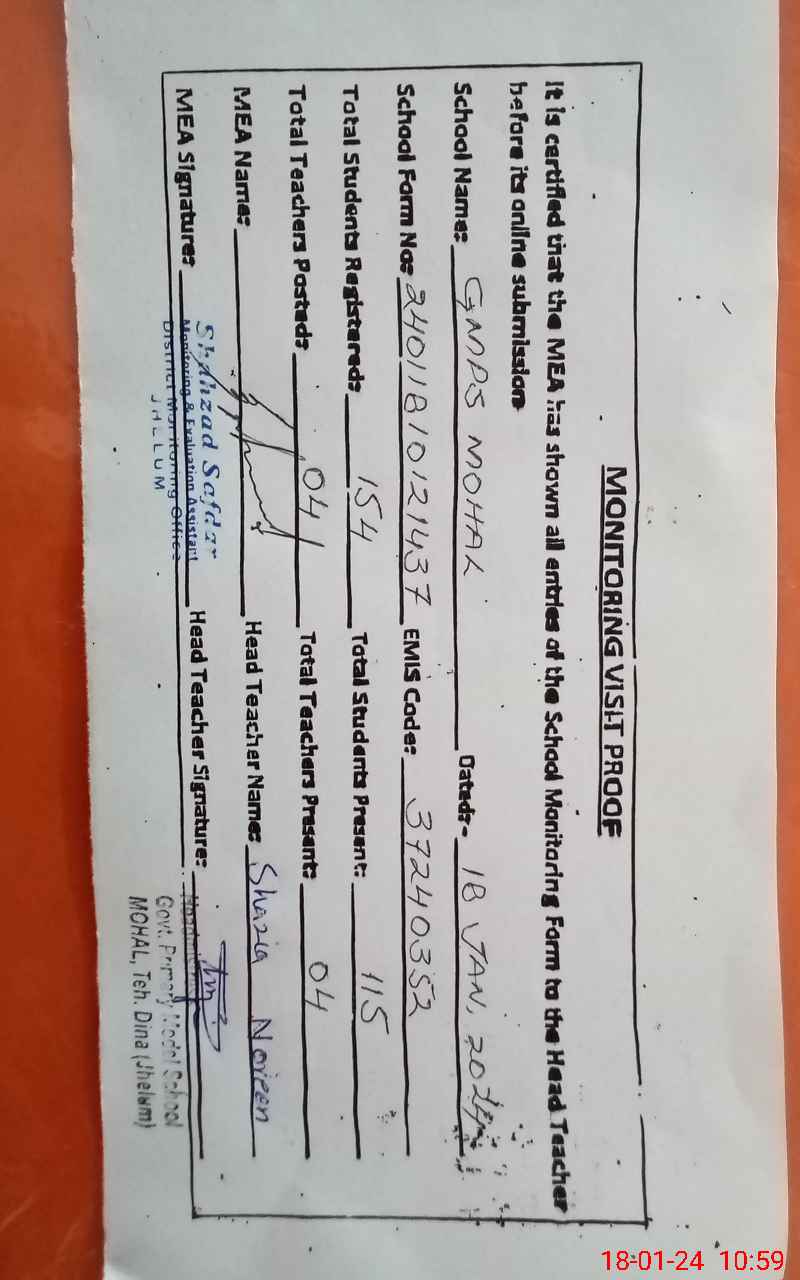 MONITORING VISIT PROOF
It is certified that the MEA has shown all entries of the School Monitoring Form to the Head Teacher
before its online submission
School Name: GMPS MOHAL Dated:- 18 JAN, 2024
School Form No: 24011810121437 EMIS Code: 37240352
Total Students Registered: 154 Total Students Present: 115
Total Teachers Posted: 04 Total Teachers Present: 04
MEA Name: Head Teacher Name: Shazia Noreen
MEA Signature: Head Teacher Signature:
Shahzad Safdar
Monitoring & Evaluation Assistant
District Monitoring Office
JHELUM
Govt. Primary Model School
MOHAL, Teh. Dina (Jhelum)
18-01-24 10:59